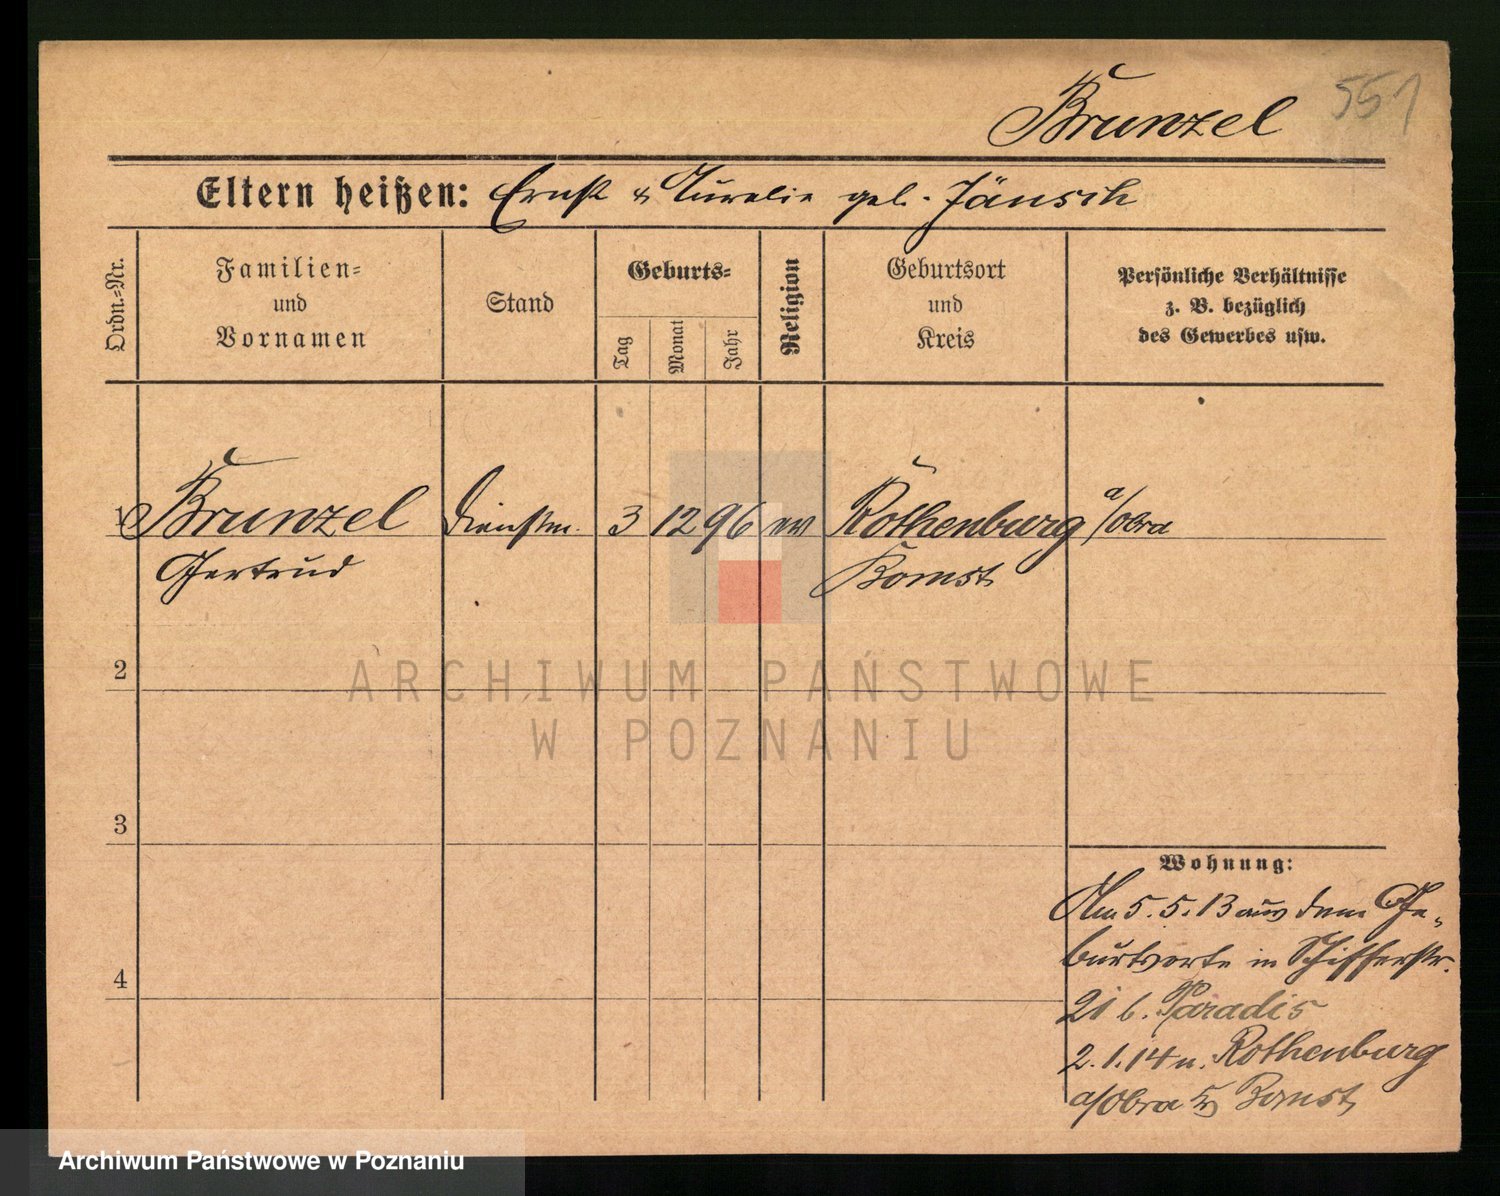 Brunzel
551
Eltern heißen: Ernst & Aurelie geb. Jänsch
Ordn.=Nr.
Familien=
und
Vornamen
Stand
Geburts=
Tag
Monat
Jahr
Religion
Geburtsort
und
Kreis
Persönliche Verhältnisse
z. B. bezüglich
des Gewerbes usw.
1 Brunzel Dienstm. 3 12 96 ev Rothenburg a/Obra
Gertrud Bomst
2
3
4
Wohnung:
Am 5.5.13 aus dem Ge-
burtsorte in Schifferstr.
21 b. Paradis
2.1.14 n. Rothenburg
a/Obra Kr Bomst
ARCHIWUM PAŃSTWOWE
W POZNANIU
Archiwum Państwowe w Poznaniu